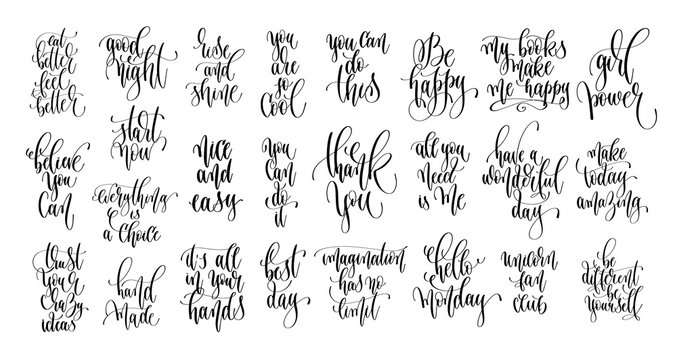 eat
better
feel
better
good
night
rise
and
shine
you
are
so
cool
you can
do
this
Be
happy
my books
make
me happy
girl
power
start
now
believe
you
can
everything
is
a choice
nice
and
easy
you
can
do it
thank
you
all you
need
is me
have a
wonderful
day
make
today
amazing
trust
your
crazy
ideas
hand
made
it's all
in your
hands
best
day
imagination
has no
limit
hello
monday
unicorn
fan
club
be
different
be
yourself